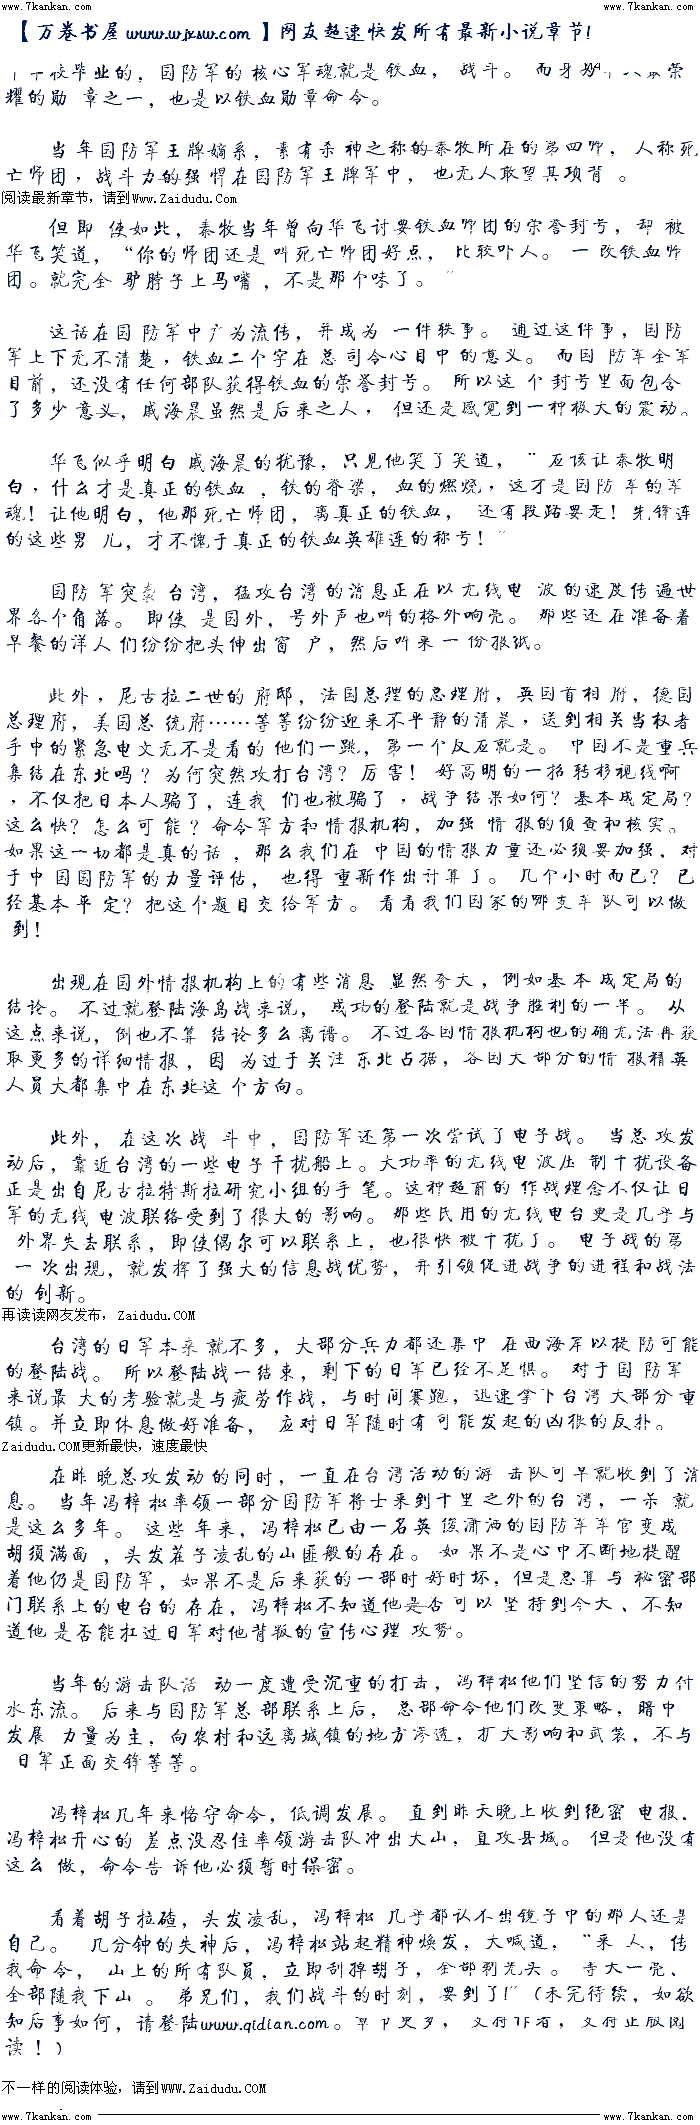 www.7kankan.com www.7kankan.com
【万卷书屋 www.wjxsw.com 】网友超速快发所有最新小说章节！
校毕业的，国防军的 核心军魂就是铁血， 战斗。 而
耀的勋 章之一，也是以铁血勋章命令。
当 年国防军王牌嫡系，素有杀 神之称的秦牧所在的第四师，人称死
亡师团，战斗力的强 悍在国防军王牌军中，也无人敢望其项背 。
阅读最新章节，请到Www.Zaidudu.Com
但即 使如此，秦牧当年曾向华飞讨要铁血师团的荣誉封号，却 被
华飞笑道，“你的师团还是 叫死亡师团好点， 比较吓人。 一 改铁血师
团。就完全 驴脖子上马嘴 ，不是那个味了。 ”
这话在国 防军中广为流传，并成为 一件轶事。 通过这件事，国防
军上下无不清楚，铁血二个字在 总 司令心目中的意义。 而国 防军全军
目前，还没有任何部队获得铁血的荣誉封号。 所以这 个 封号里面包含
了多少 意义，戚海晨虽然是后来之人， 但还是感觉到一种极大的震动。
华飞似乎明白 戚海晨的犹豫，只见他笑了笑道，“ 应该让秦牧明
白，什么才是真正的铁血 ，铁的脊梁， 血的燃烧，这才是国防 军的军
魂！让他明白，他那死亡师团，离真正的铁血， 还有段路要走！先锋连
的这些男 儿，才不愧于真正的铁血英雄连的称号！”
国防 军突袭 台湾，猛攻台湾 的消息正在以 无线电 波的速度传 遍世
界各个角落。 即使 是国外，号外声也叫的格外响亮。 那些还在准备着
早餐的洋人 们纷纷把头伸出窗 户，然后叫来 一 份报纸。
此外，尼古拉二世的 府邸，法国总理的总理府，英国首相 府，德国
总理府，美国总 统府……等等纷纷迎来不平静的清晨，送到相关当权者
手中的紧急电文无不是看的 他们一跳，第一个反应就是。 中国不是重兵
集结在东北吗？为何突然攻打台湾？厉 害！ 好高明的一招 转移视线啊
，不仅把日本人骗了，连我 们也被骗了 ，战争结果如何？基本成定局？
这么快？怎么可 能？ 命令军方和 情报机构，加强 情 报的侦查和核实。
如果这一切都是真的话 ，那么我们在 中国的情报力量还必须要加强，对
于中 国国防军的力量评估， 也得 重新作出计算了。 几个小时而已？已
经基本平 定？把这个题目交 给军方。 看看我们国家的哪支军 队可以做
到！
出现在国外情报机构上的有些消息 显然夸大，例如基本 成定局的
结论。 不过就登陆海岛战来说， 成功的登陆就是战争胜利的一半。 从
这点来说，倒也不算 结论多么离谱。 不过各国情报机构也的确无法再获
取更多的详细情报，因 为过于关注 东北占据，各国大 部分的情 报精英
人员大都集中在东北这 个方向。
此外， 在这次战 斗中，国防军还第一次尝试了电子战。 当总 攻发
动后，靠近台湾的一些电子干扰船上。大功率的无线电 波压 制干扰设备
正是出自尼古拉特斯拉研究小组的手 笔。这种超前的 作战理念不仅让日
军的无线 电波联络受到了很大的 影响。 那些民用的无线电台更是几乎与
外界失去联系，即使偶尔可以联系上，也很快 被干扰了。 电子战的第
一 次出现，就发挥了强大的信息战优势，并引领促进战争的进程和战法
的 创新。
再读读网友发布， Zaidudu.COM
台湾的日军本来 就不多，大部分兵力都还集中 在西海岸以提 防可能
的登陆战。 所以登陆战一结束，剩下的日军已经不足惧。 对于国 防军
来说最 大的考验就是与疲劳作战，与时间赛跑，迅速拿下台湾 大部分重
镇。并立即休息做好准备， 应对日军随时有 可能发起的凶狠的反扑。
Zaidudu.COM更新最快，速度最快
在昨 晚总攻发动 的同时，一直在台湾活动的游 击队可早就收到了消
息。 当年冯梓 松率领一部分国防军将士来到千里 之外的台 湾，一杀 就
是这么多年。 这些 年来，冯梓松已由一名英 俊潇洒的国防军军官变成
胡须满面 ，头发茬子凌乱的山匪般的存在。 如 果不是心中不断地提醒
着他仍是国防军，如果不是后来获的一部时 好时坏，但是总算 与 秘密部
门联系上的电台的 存在，冯梓松不知道他是否 可以 坚 持到今天、不知
道他 是否能扛过日军对他背叛的宣传心理 攻势。
当年的游击队活 动一度遭受沉重的打击，冯梓松他们坚信的努力付
水东流。 后来与国防军总 部联系上后， 总部命令他们改变策略，暗中
发展 力量为主，向农村和远离城镇的地方渗透，扩大影响和武装，不与
日军正面交锋等等。
冯梓松几年来恪守命令，低调发展。 直到昨天晚上收到绝密 电报，
冯梓松开心的 差点没忍住率领游击队冲出大山，直攻县城。 但是他没有
这么 做，命令告 诉他必须暂时保密。
看着胡子拉碴，头发凌乱，冯梓松 几乎都认不出镜子中的那人还是
自己。 几分钟的失神后，冯梓松站起精神焕发，大喊道，“来 人，传
我命 令， 山上的所有队员，立即刮掉胡子，全部剃光头。 等天一亮、
全部随我下山 。 弟兄们，我们战斗的时刻，要到了！”（未完待续，如欲
知后事如何，请登陆www.qidian.com。章节更多，支持作者，支持正版阅
读 ！）
不一样的阅读体验，请到WWW.ZaiduDu.COM
www.7kankan.com www.7kankan.com